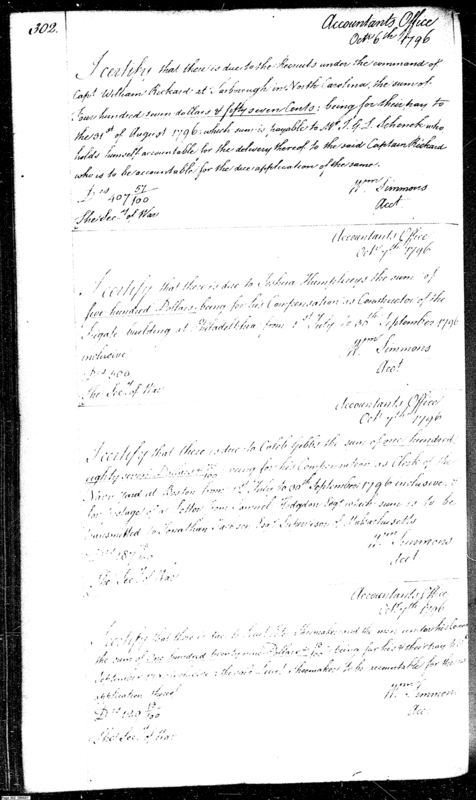 302.
Accountants Office
Octr 6th 1796
I certify that there is due to the Recruits under the command of
Capt. William Rickard at Tarborough in North Carolina, the sum of
Four hundred seven dollars & fifty seven Cents; being for their pay to
the 31st of August 1796; which sum is payable to Mr who
holds himself accountable for the delivery thereof to the said Captain Rickard
who is to be accountable for the due application of the same.
Drs 407 57/100
Wm Simmons
Acct
The Secy of War
Accountants Office
Octr 7th 1796
I certify that there is due to Joshua Humphreys the sum of
five hundred Dollars, being for his Compensation as Constructor of the
Frigate building at Philadelphia from 1st July to 30th September 1796
inclusive
Wm Simmons
Drs 500
Acct
The Secy of War
Accountants Office
Octr 7th 1796
I certify that there is due to Caleb Gibbs the sum of one hundred
eighty seven Dollars being for his Compensation as Clerk of the
Navy Yard at Boston from 1st July to 30th September 1796 inclusive, &
for postage of a letter from Samuel Hodgdon Esqr which sum is to be
transmitted to Jonathan Jackson Esqr Supervisor of Massachusetts
Drs 187
Wm Simmons
Acct
The Secy of War
Accountants Office
Octr 7th 1796
I certify that there is due to Lieut Shoemaker and the men under his
the sum of One hundred twenty nine Dollars being for his & their pay to
September the said Lieut Shoemaker to be accountable for the
application thereof
Drs 129
Wm Simmons
Acct
The Secy of War